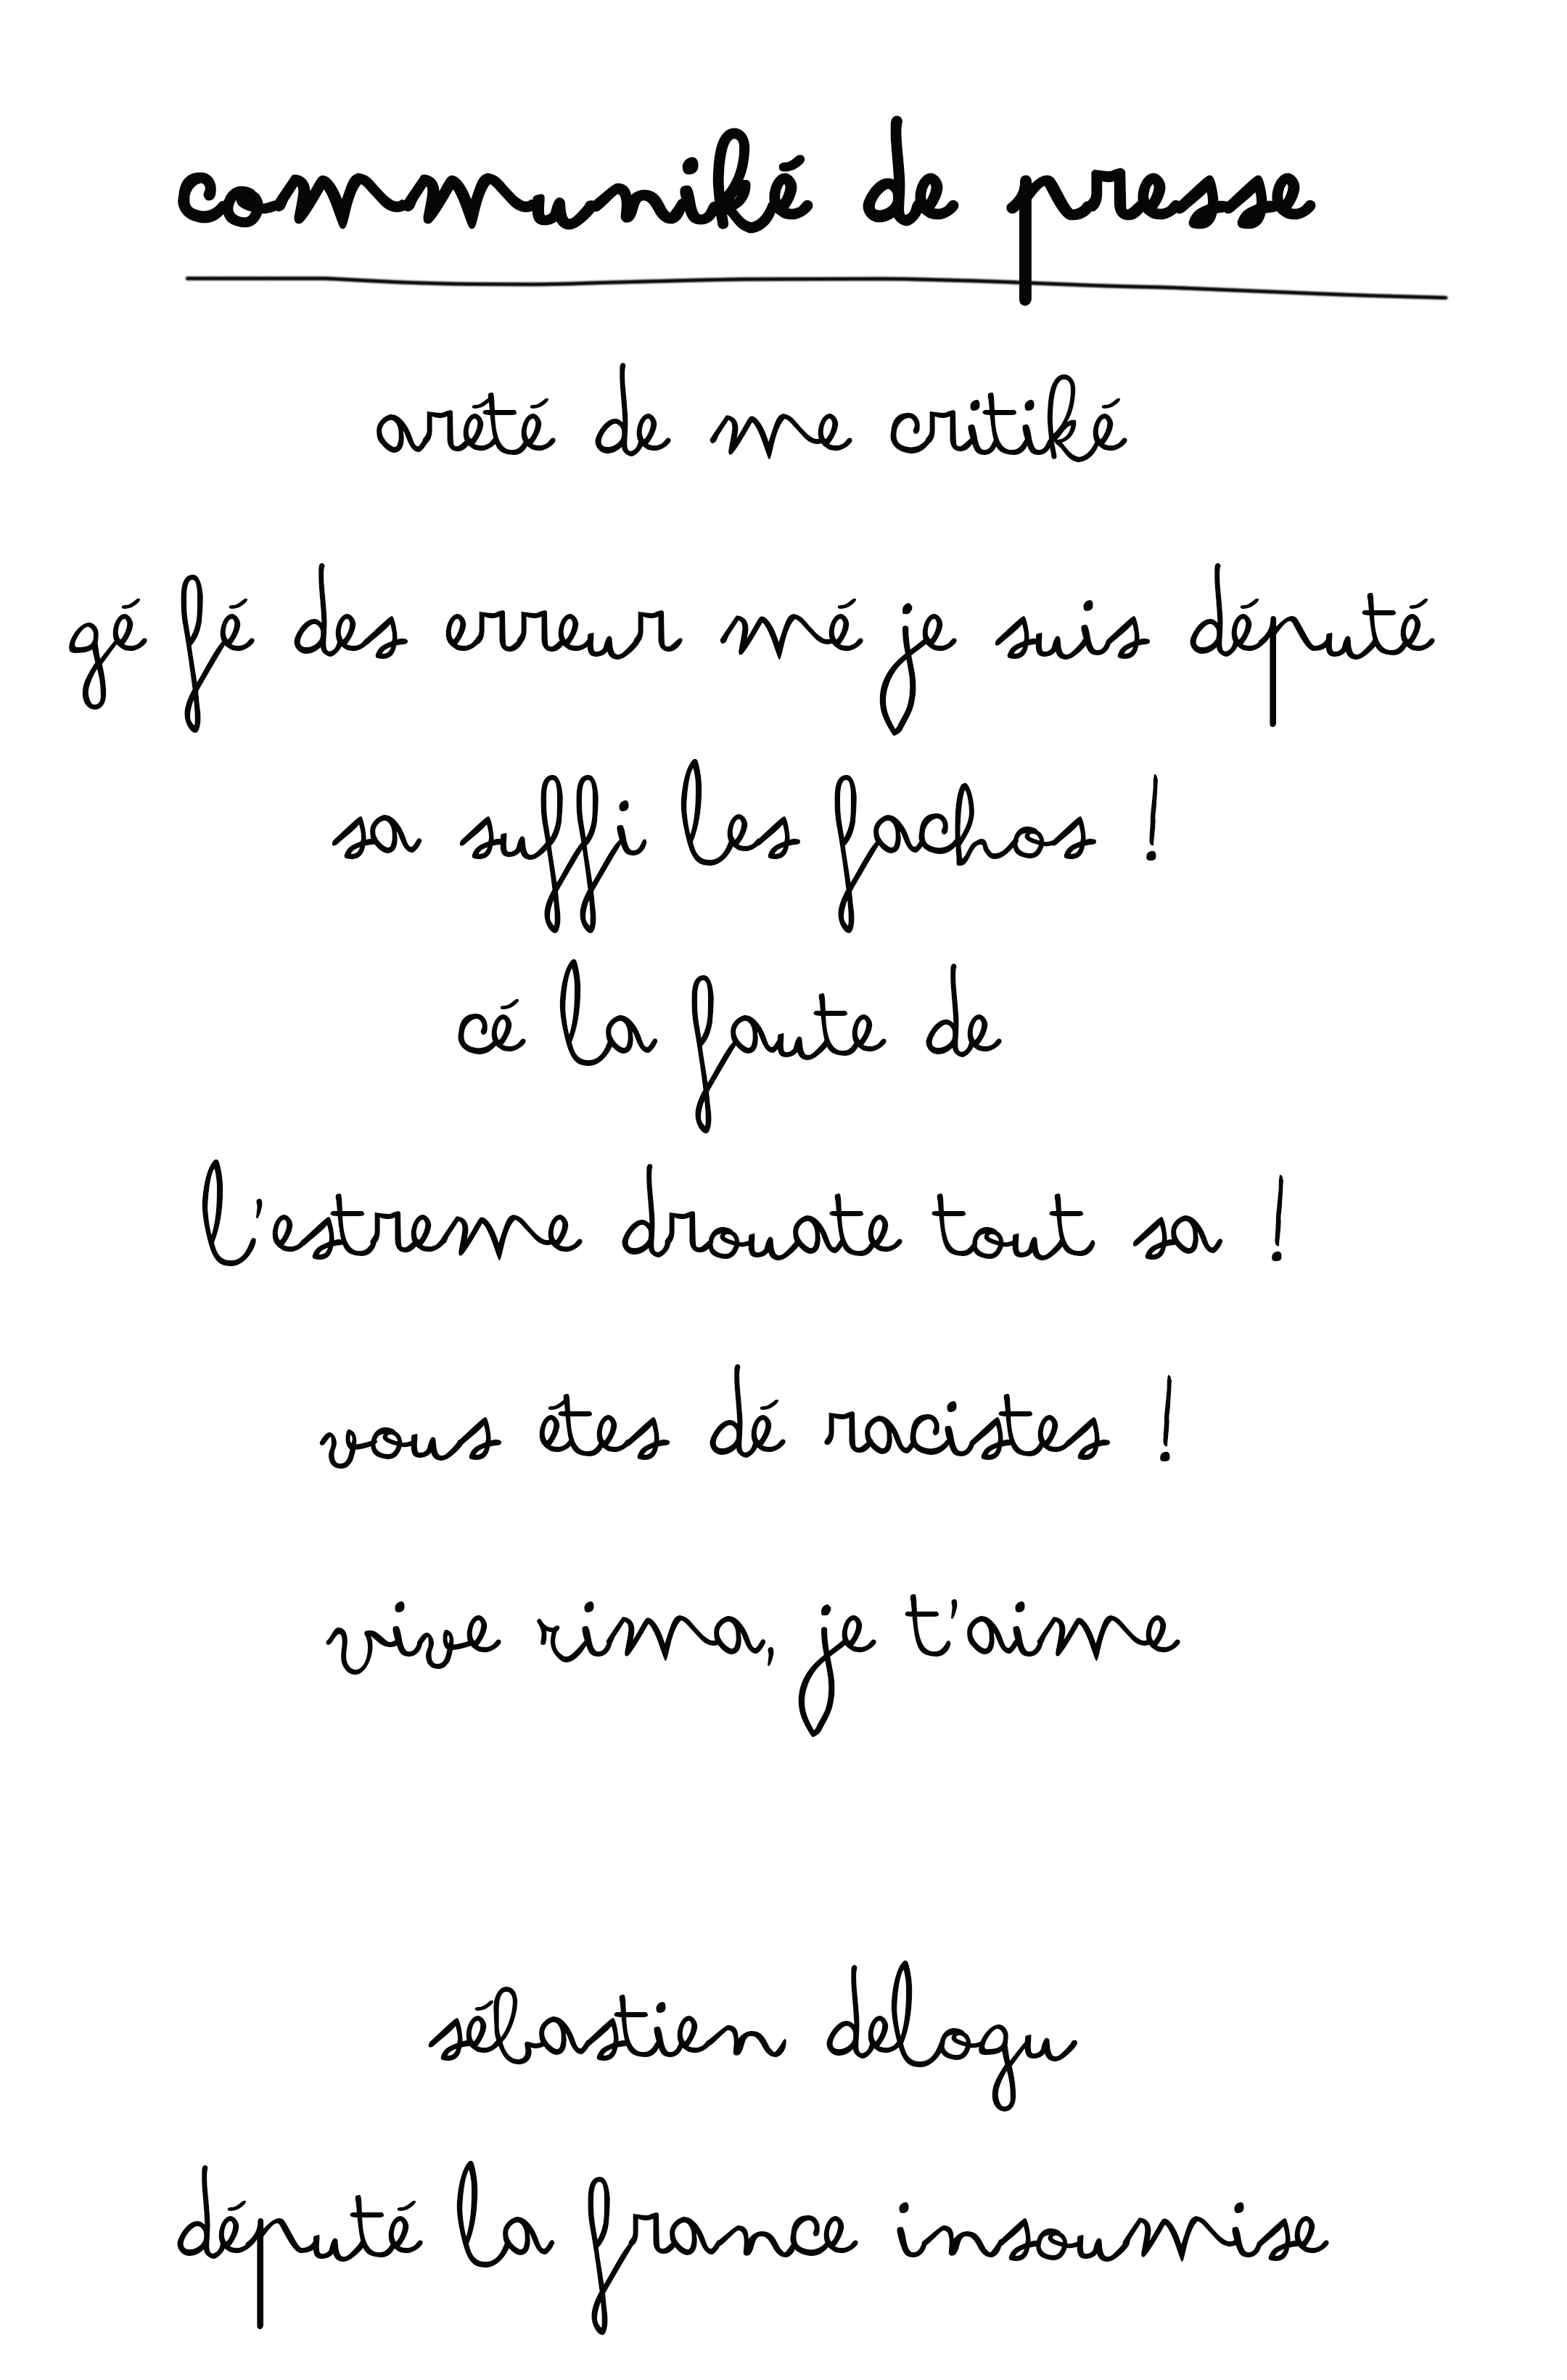 communiké de presse
arété de me critiké
gé fé des erreur mé je suis député
sa suffi les fachos !
cé la faute de
l'estreme drouate tout sa !
vous étes dé racistes !
vive rima, je t'aime
sébastien délogu
député la france insoumise